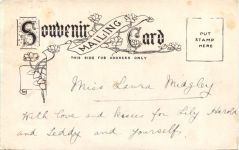 Souvenir
MAILING
Card
THIS SIDE FOR ADDRESS ONLY
PUT
STAMP
HERE
Miss Laura Midgley
With love and kisses for Lily Harold
and Teddy and yourself,